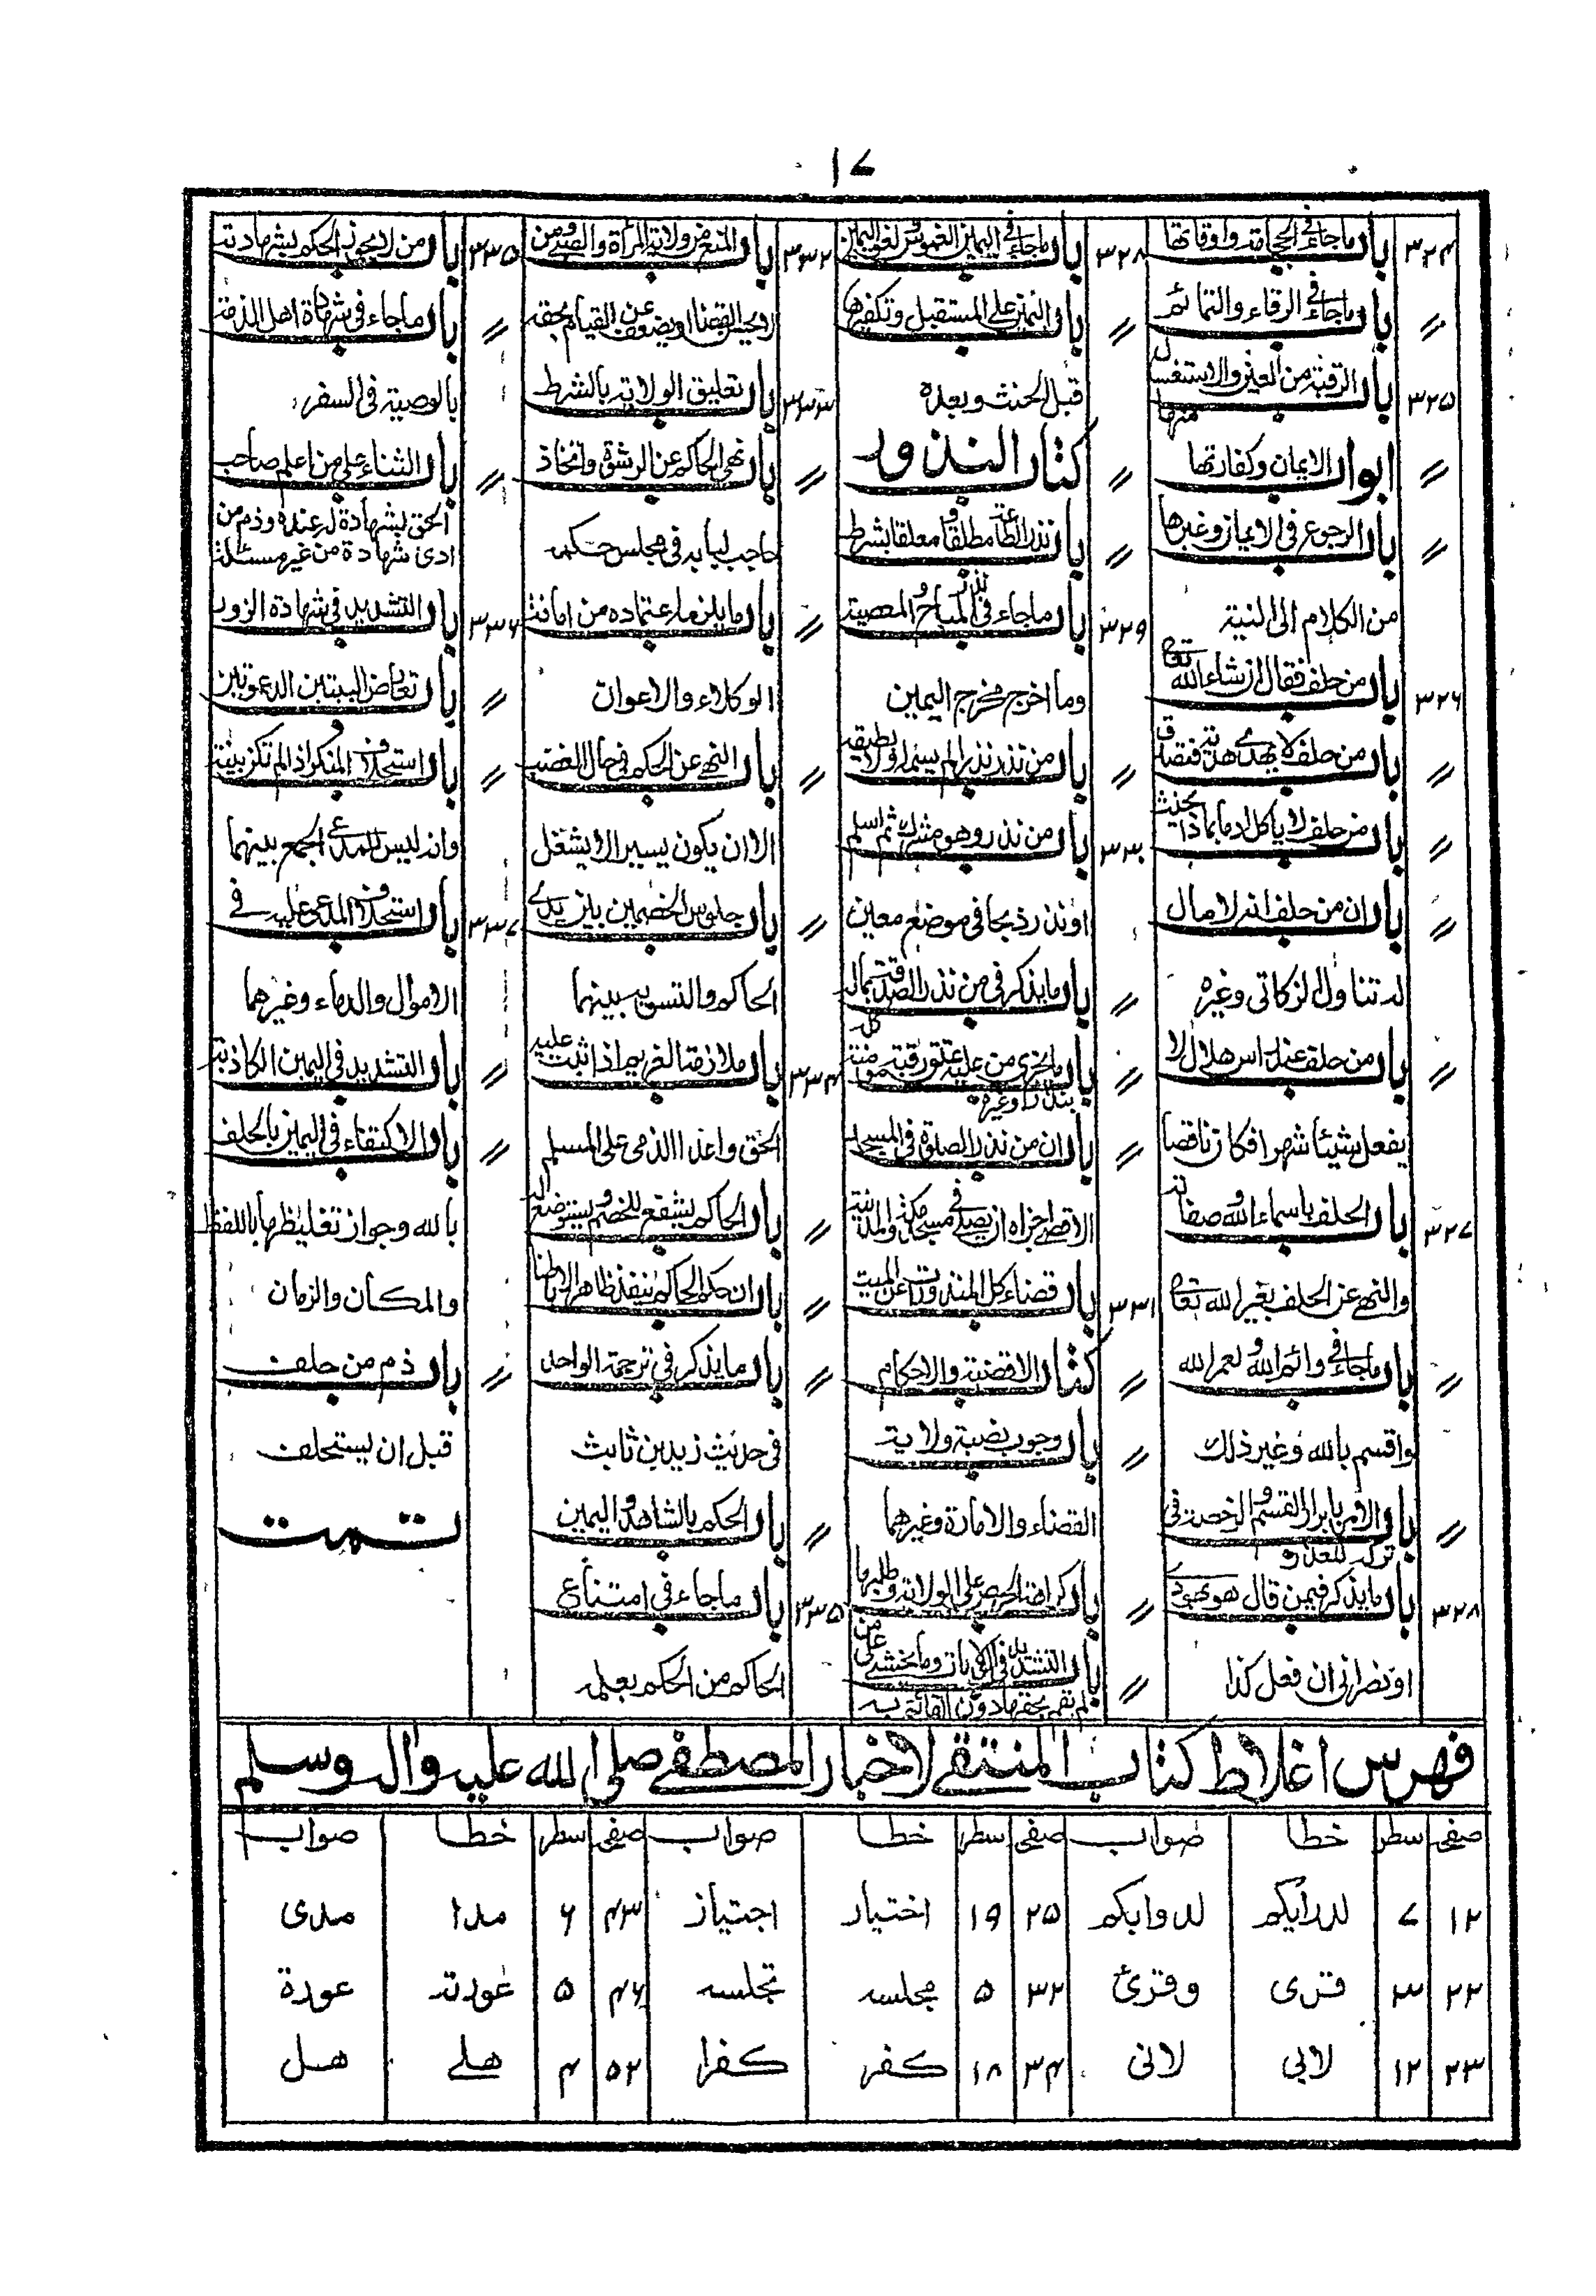 ۱۷
۳۲۴ باب ما جاء فى الحجامة واوقاتها
〃 باب ما جاء فى الرقاء والتمائم
۳۲۵ باب الرقية من العين والاستغسال منها
〃 ابواب الايمان وكفارتها
〃 باب الرجوع فى الايمان وغيرها
من الكلام الى النية
۳۲۶ باب من حلف فقال ان شاء الله تعالى
〃 باب من حلف لا يهدى هدية فتصدق
〃 باب من حلف لا ياكل ادما بماذا يحنث
〃 باب ان من حلف انه لا مال
له تناول الزكاتى وغيره
〃 باب من حلف عند راس هلال لا
يفعل شيئا شهرا فكان ناقصا
۳۲۷ باب الحلف باسماء الله وصفاته
والنهى عن الحلف بغير الله تعالى
〃 باب ما جاء فى وائم الله ولعمر الله
واقسم بالله وغير ذلك
〃 باب الامر بابرار القسم والرخصة فى
تركه للعذر
۳۲۸ باب ما يذكر فيمن قال هو يهودى
او نصرانى ان فعل كذا
۳۲۸ باب ما جاء فى اليمين الغموس ولغو اليمين
〃 باب اليمين على المستقبل وتكفيرها
قبل الحنث وبعده
〃 كتاب النذور
〃 باب نذر الطاعة مطلقا ومعلقا بشرط
۳۲۹ باب ما جاء فى نذر المباح والمعصية
وما اخرج مخرج اليمين
〃 باب من نذر نذرا لم يسمه او لا يطيقه
۳۳۰ باب من نذر وهو مشرك ثم اسلم
او نذر ذبحا فى موضع معين
〃 باب ما يذكر فى من نذر الصدقة بماله كله
〃 باب ما يجزى من عليه عتق رقبة مومنة
بنذر او غيره
〃 باب ان من نذر الصلوة فى المسجد
الاقصى اجزاه ان يصلى فى مسجد مكة والمدينة
۳۳۱ باب قضاء كل المنذورات عن الميت
〃 كتاب الاقضية والاحكام
〃 باب وجوب نصبة ولاية
القضاء والامارة وغيرهما
〃 باب كراهة الحرص على الولاية وطلبها
〃 باب التشديد فى الولايات وما يخشى على من
لم يقم بحقها دون القائم به
۳۳۲ باب المنع من ولاية المرأة والصبى ومن
لا يحسن القضاء او يضعف عن القيام بحقه
۳۳۳ باب تعليق الولاية بالشرط
〃 باب نهى الحاكم عن الرشوة واتخاذ
حاجب لبابه فى مجلس حكمه
〃 باب ما يلزم اعتماده من امانة
الوكلاء والاعوان
〃 باب النهى عن الحكم فى حال الغضب
الا ان يكون يسيرا لا يشغل
〃 باب جلوس الخصمين بين يدى
الحاكم والتسوية بينهما
۳۳۴ باب ملازمة الغريم اذا ثبت عليه
الحق واعداء الذمى على المسلم
〃 باب الحاكم يشفع للخصم ويستوضع له
〃 باب ان حكم الحاكم ينفذ ظاهرا لا باطنا
〃 باب ما يذكر فى ترجمة الواحد
فى حديث زيد بن ثابت
〃 باب الحكم بالشاهد واليمين
۳۳۵ باب ما جاء فى امتناع
الحاكم من الحكم بعلمه
۳۳۵ باب من لا يجوز الحكم بشهادته
〃 باب ما جاء فى شهادة اهل الذمة
بالوصية فى السفر
〃 باب الثناء على من اعلم صاحب
الحق بشهادة له عنده وذم من
ادى شهادة من غير مسئلة
۳۳۶ باب التشديد فى شهادة الزور
〃 باب تعارض البينتين والدعوتين
〃 باب استحلاف المنكر اذا لم تكن بينة
وانه ليس للمدعى الجمع بينهما
۳۳۷ باب استحلاف المدعى عليه فى
الاموال والدماء وغيرهما
〃 باب التشديد فى اليمين الكاذبة
〃 باب الاكتفاء فى اليمين بالحلف
بالله وجواز تغليظها باللفظ
والمكان والزمان
〃 باب ذم من حلف
قبل ان يستحلف
تمت
فهرس اغلاط كتاب المنتقى لاخبار المصطفى صلى الله عليه واله وسلم
صفحه سطر خطا صواب صفحه سطر خطا صواب صفحه سطر خطا صواب
۱۲ ۷ لدرايكم لدوابكم ۲۵ ۱۹ اختيار اجتياز ۴۳ ۶ مدا مدى
۲۲ ۳ قرى وقرئ ۳۲ ۵ مجلسه تجلسه ۴۶ ۵ عودته عودة
۲۳ ۱۲ لابى لانى ۳۴ ۱۸ كفر كفرا ۵۲ ۴ هلے هل